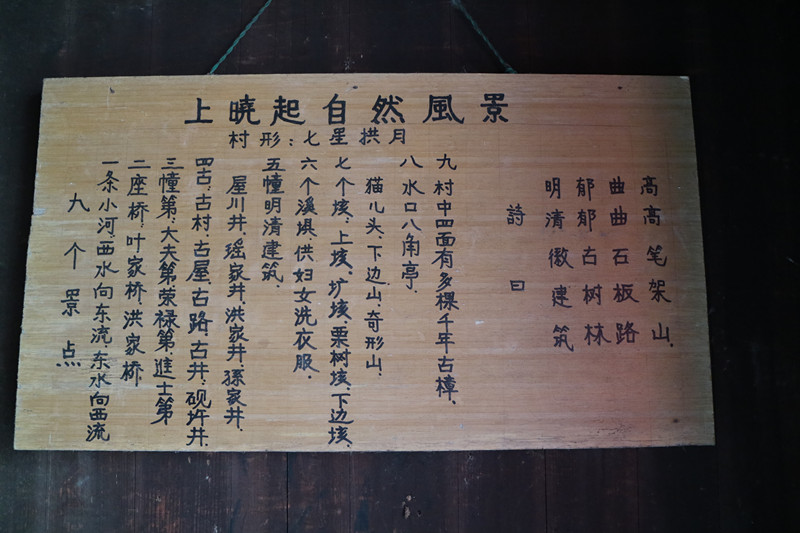 上曉起自然風景
村形:七星拱月
九个景点
一条小河西水向东流,东水向西流
二座桥:叶家桥,洪家桥.
三幢第:大夫第荣禄第,進士第
四古:古村,古屋,古路,古井:砚圫井.
屋川井,瑶家井,洪家井,孫家井.
五幢明清建筑.
六个溪埧,供妇女洗衣服.
七个垓,上垓,圹垓,栗树垓,下边垓,
猫儿头,下边山,奇形山.
八水口八角亭.
九村中四面有多棵千年古樟.
詩曰
明清徽建筑
郁郁古树林
曲曲石板路
高高笔架山.